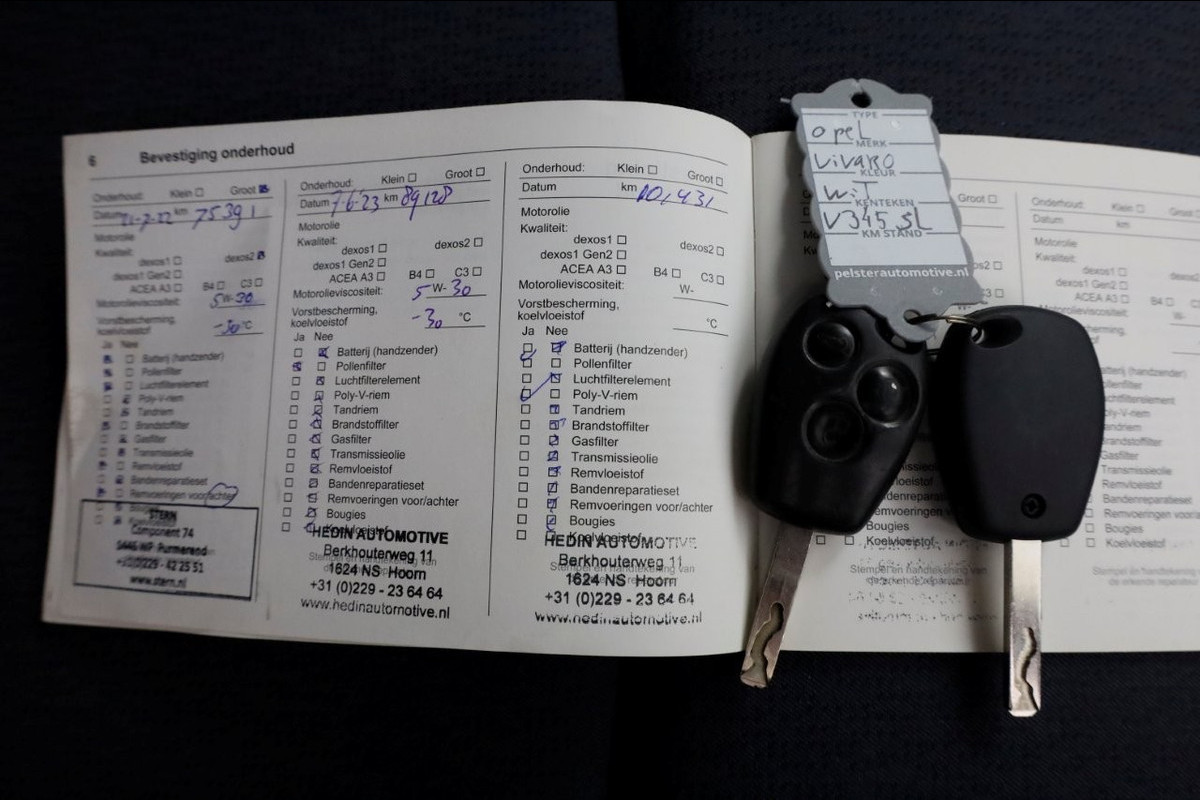 6 Bevestiging onderhoud
Onderhoud: Klein Groot
Datum km 75391
Motorolie
Kwaliteit:
dexos1 dexos2
dexos1 Gen2
ACEA A3 B4 C3
Motorolieviscositeit: 5 W- 30
Vorstbescherming,
koelvloeistof -30 °C
Ja Nee
Batterij (handzender)
Pollenfilter
Luchtfilterelement
Poly-V-riem
Tandriem
Brandstoffilter
Gasfilter
Transmissieolie
Remvloeistof
Bandenreparatieset
Remvoeringen voor/achter
STERN
Component 74
1446 WP Purmerend
www.stern.nl
Onderhoud: Klein Groot
Datum 7-6-23 km 89128
Motorolie
Kwaliteit:
dexos1 dexos2
dexos1 Gen2
ACEA A3 B4 C3
Motorolieviscositeit: 5 W- 30
Vorstbescherming,
koelvloeistof -30 °C
Ja Nee
Batterij (handzender)
Pollenfilter
Luchtfilterelement
Poly-V-riem
Tandriem
Brandstoffilter
Gasfilter
Transmissieolie
Remvloeistof
Bandenreparatieset
Remvoeringen voor/achter
Bougies
Koelvloeistof
HEDIN AUTOMOTIVE
Berkhouterweg 11
1624 NS Hoorn
+31 (0)229 - 23 64 64
www.hedinautomotive.nl
Onderhoud: Klein Groot
Datum km 101,431
Motorolie
Kwaliteit:
dexos1 dexos2
dexos1 Gen2
ACEA A3 B4 C3
Motorolieviscositeit: W-
Vorstbescherming,
koelvloeistof °C
Ja Nee
Batterij (handzender)
Pollenfilter
Luchtfilterelement
Poly-V-riem
Tandriem
Brandstoffilter
Gasfilter
Transmissieolie
Remvloeistof
Bandenreparatieset
Remvoeringen voor/achter
Bougies
Koelvloeistof
HEDIN AUTOMOTIVE
Berkhouterweg 11
1624 NS Hoorn
+31 (0)229 - 23 64 64
www.hedinautomotive.nl
TYPE
opel
MERK
Vivaro
KLEUR
wit
KENTEKEN
V345SL
KM STAND
pelsterautomotive.nl
Groot
Bougies
Koelvloeistof
Onderhoud: Klein
Datum km
Motorolie
Kwaliteit:
dexos1
dexos1 Gen2
ACEA A3 B4 C
Batterij (handzender)
Pollenfilter
Luchtfilterelement
Poly-V-riem
Tandriem
Brandstoffilter
Gasfilter
Transmissieolie
Remvloeistof
Bandenreparatieset
Remvoeringen voor/
Bougies
Koelvloeistof
Stempel en handtekening